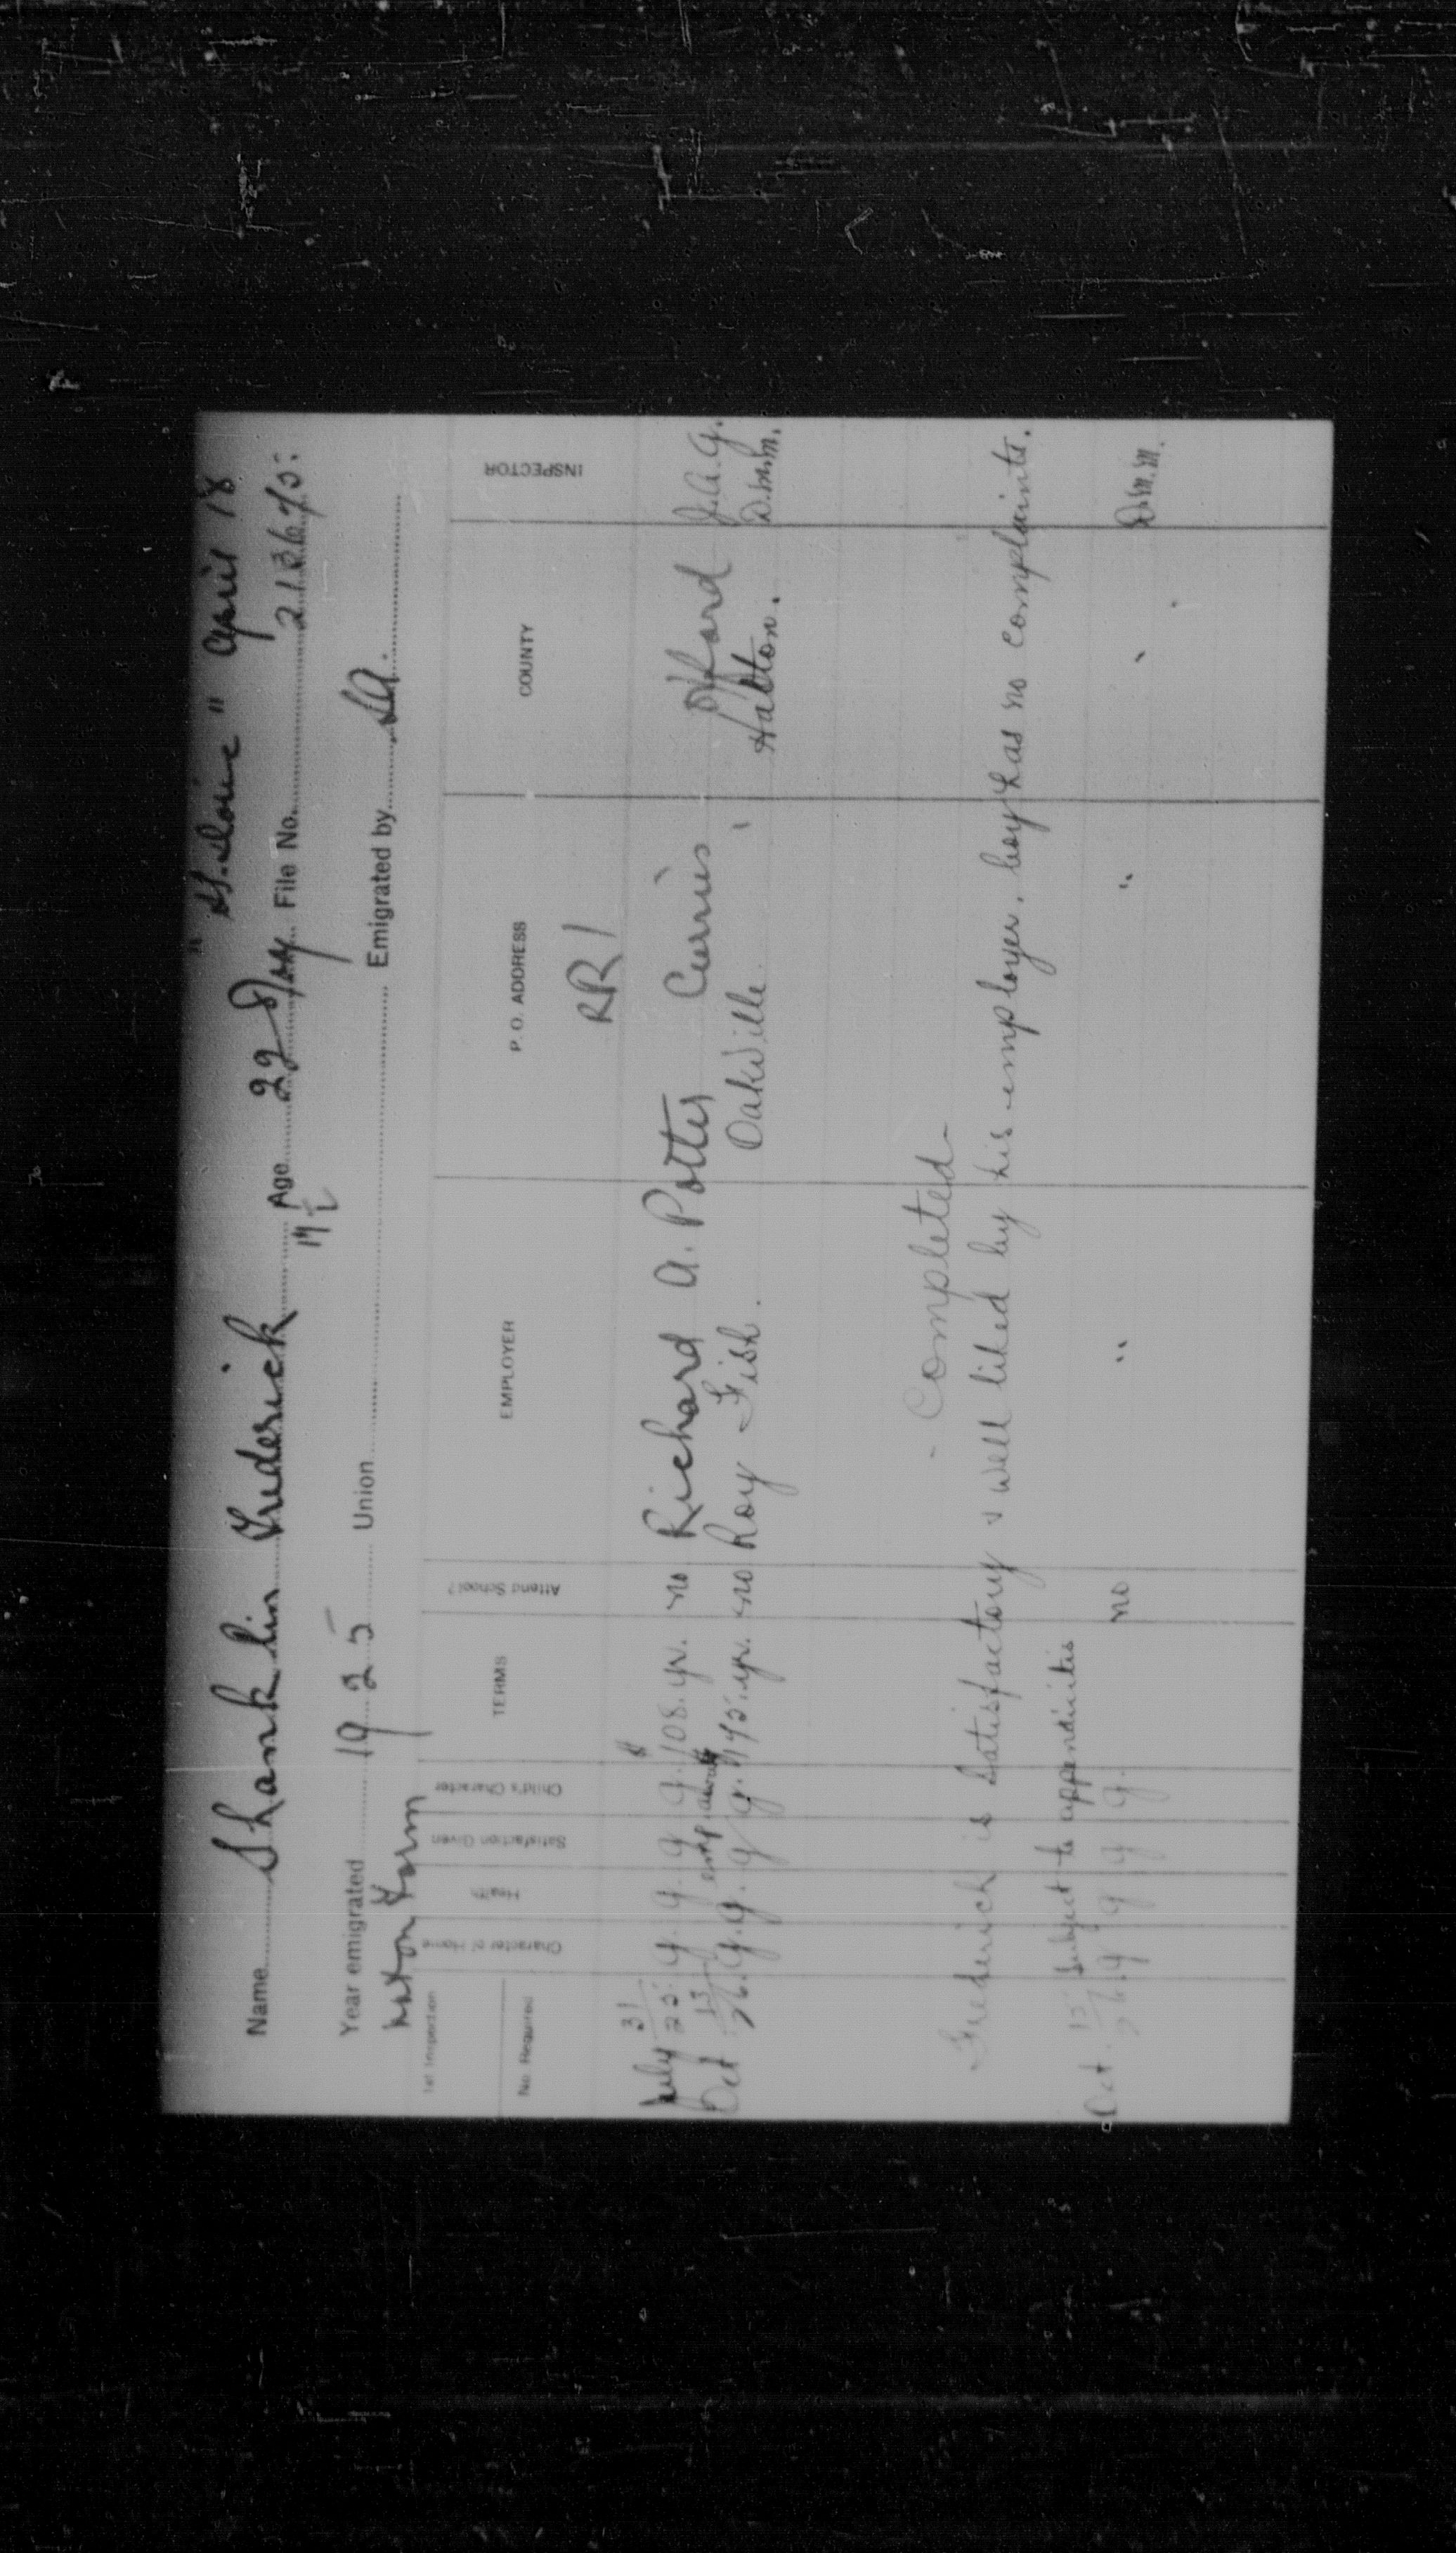 April 18
Name Shanklin Frederick Age File No.
17
Year emigrated 1925 Union Emigrated by S.A.
Farm
1st Inspection
No. Required Character of Home Health Satisfaction Given Child's Character TERMS Attend School? EMPLOYER P. O. ADDRESS COUNTY INSPECTOR
RR 1
July 31/25 g. g. g g. $108. yr. no Richard A. Potter Currie's Oxford J.A.G.
Oct 15/26. g. g. g g. yr. no Roy Fish. Oakville. Halton. D.M.M.
- Completed -
Frederick is satisfactory & well liked by his employer, boy has no complaints.
Subject to appendicitis
Oct. 15/26. g g g g. no " " " D.M.M.